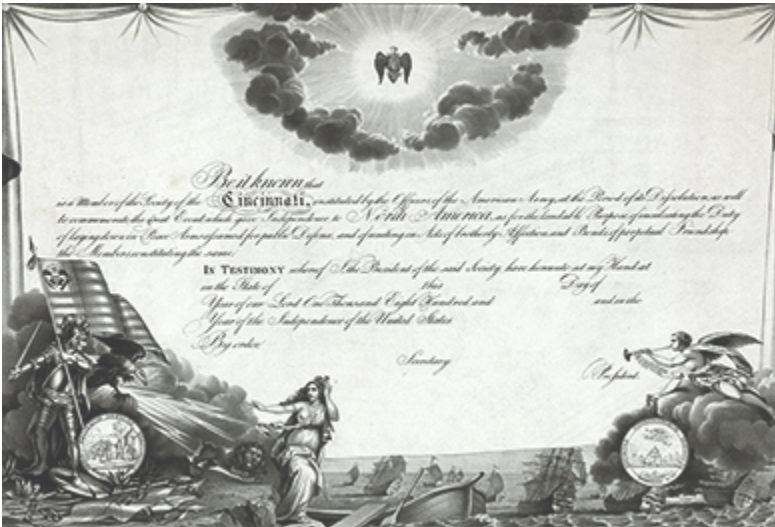 Be it known that
is a Member of the Society of the Cincinnati, instituted by the Officers of the American Army, at the Period of its Dissolution, as well
to commemorate the great Event which gave Independence to North America, as for the laudable Purpose of inculcating the Duty
of laying down in Peace Arms assumed for public Defence, and of uniting in Acts of brotherly Affection, and Bonds of perpetual Friendship
the Members constituting the same;
IN TESTIMONY whereof I, the President of the said Society, have hereunto set my Hand at
in the State of this Day of
Year of our Lord One Thousand Eight Hundred and and in the
Year of the Independence of the United States
By order
Secretary. President.